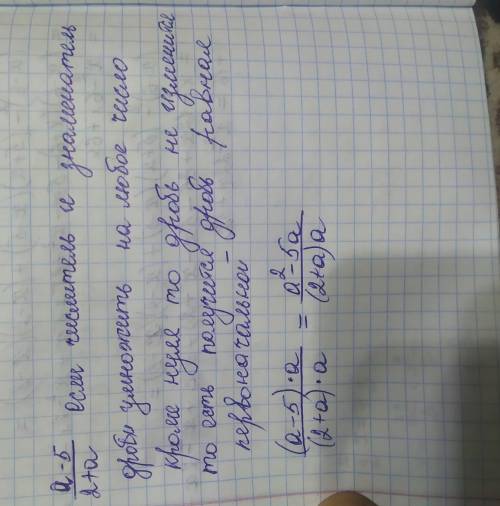 (a-5)/(2+a) если числитель и знаменатель
дроби умножить на любое число
кроме нуля то дробь не изменится
то есть получится дробь равная
первоначальной
((a-5)·a)/((2+a)·a) = (a²-5a)/((2+a)a)